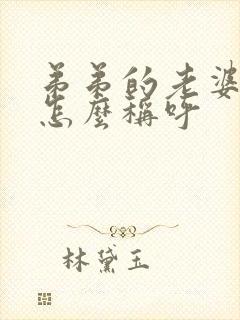 弟弟的老婆
怎麼稱呼
林黛玉